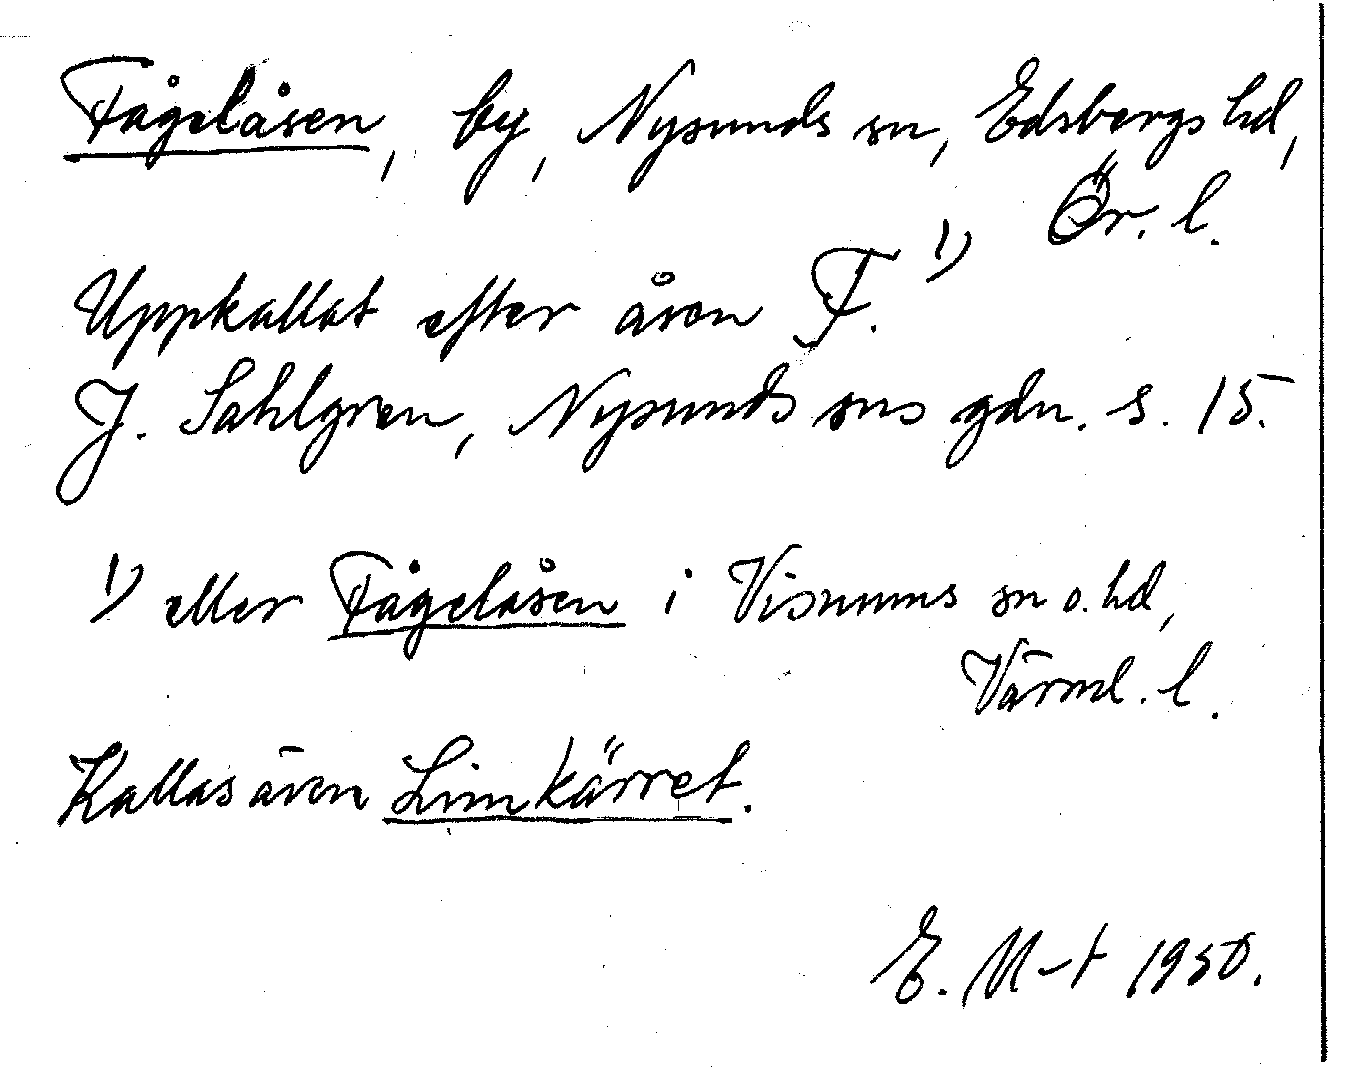 Fågelåsen, by, Nysunds sn, Edsbergs hd,
Ör. l.
Uppkallat efter åsen F. 1)
J. Sahlgren, Nysunds sns gdn. s. 15.
1) eller Fågelåsen i Visnums sn o. hd,
Värml. l.
Kallas även Limkärret.
E. M-t 1950.